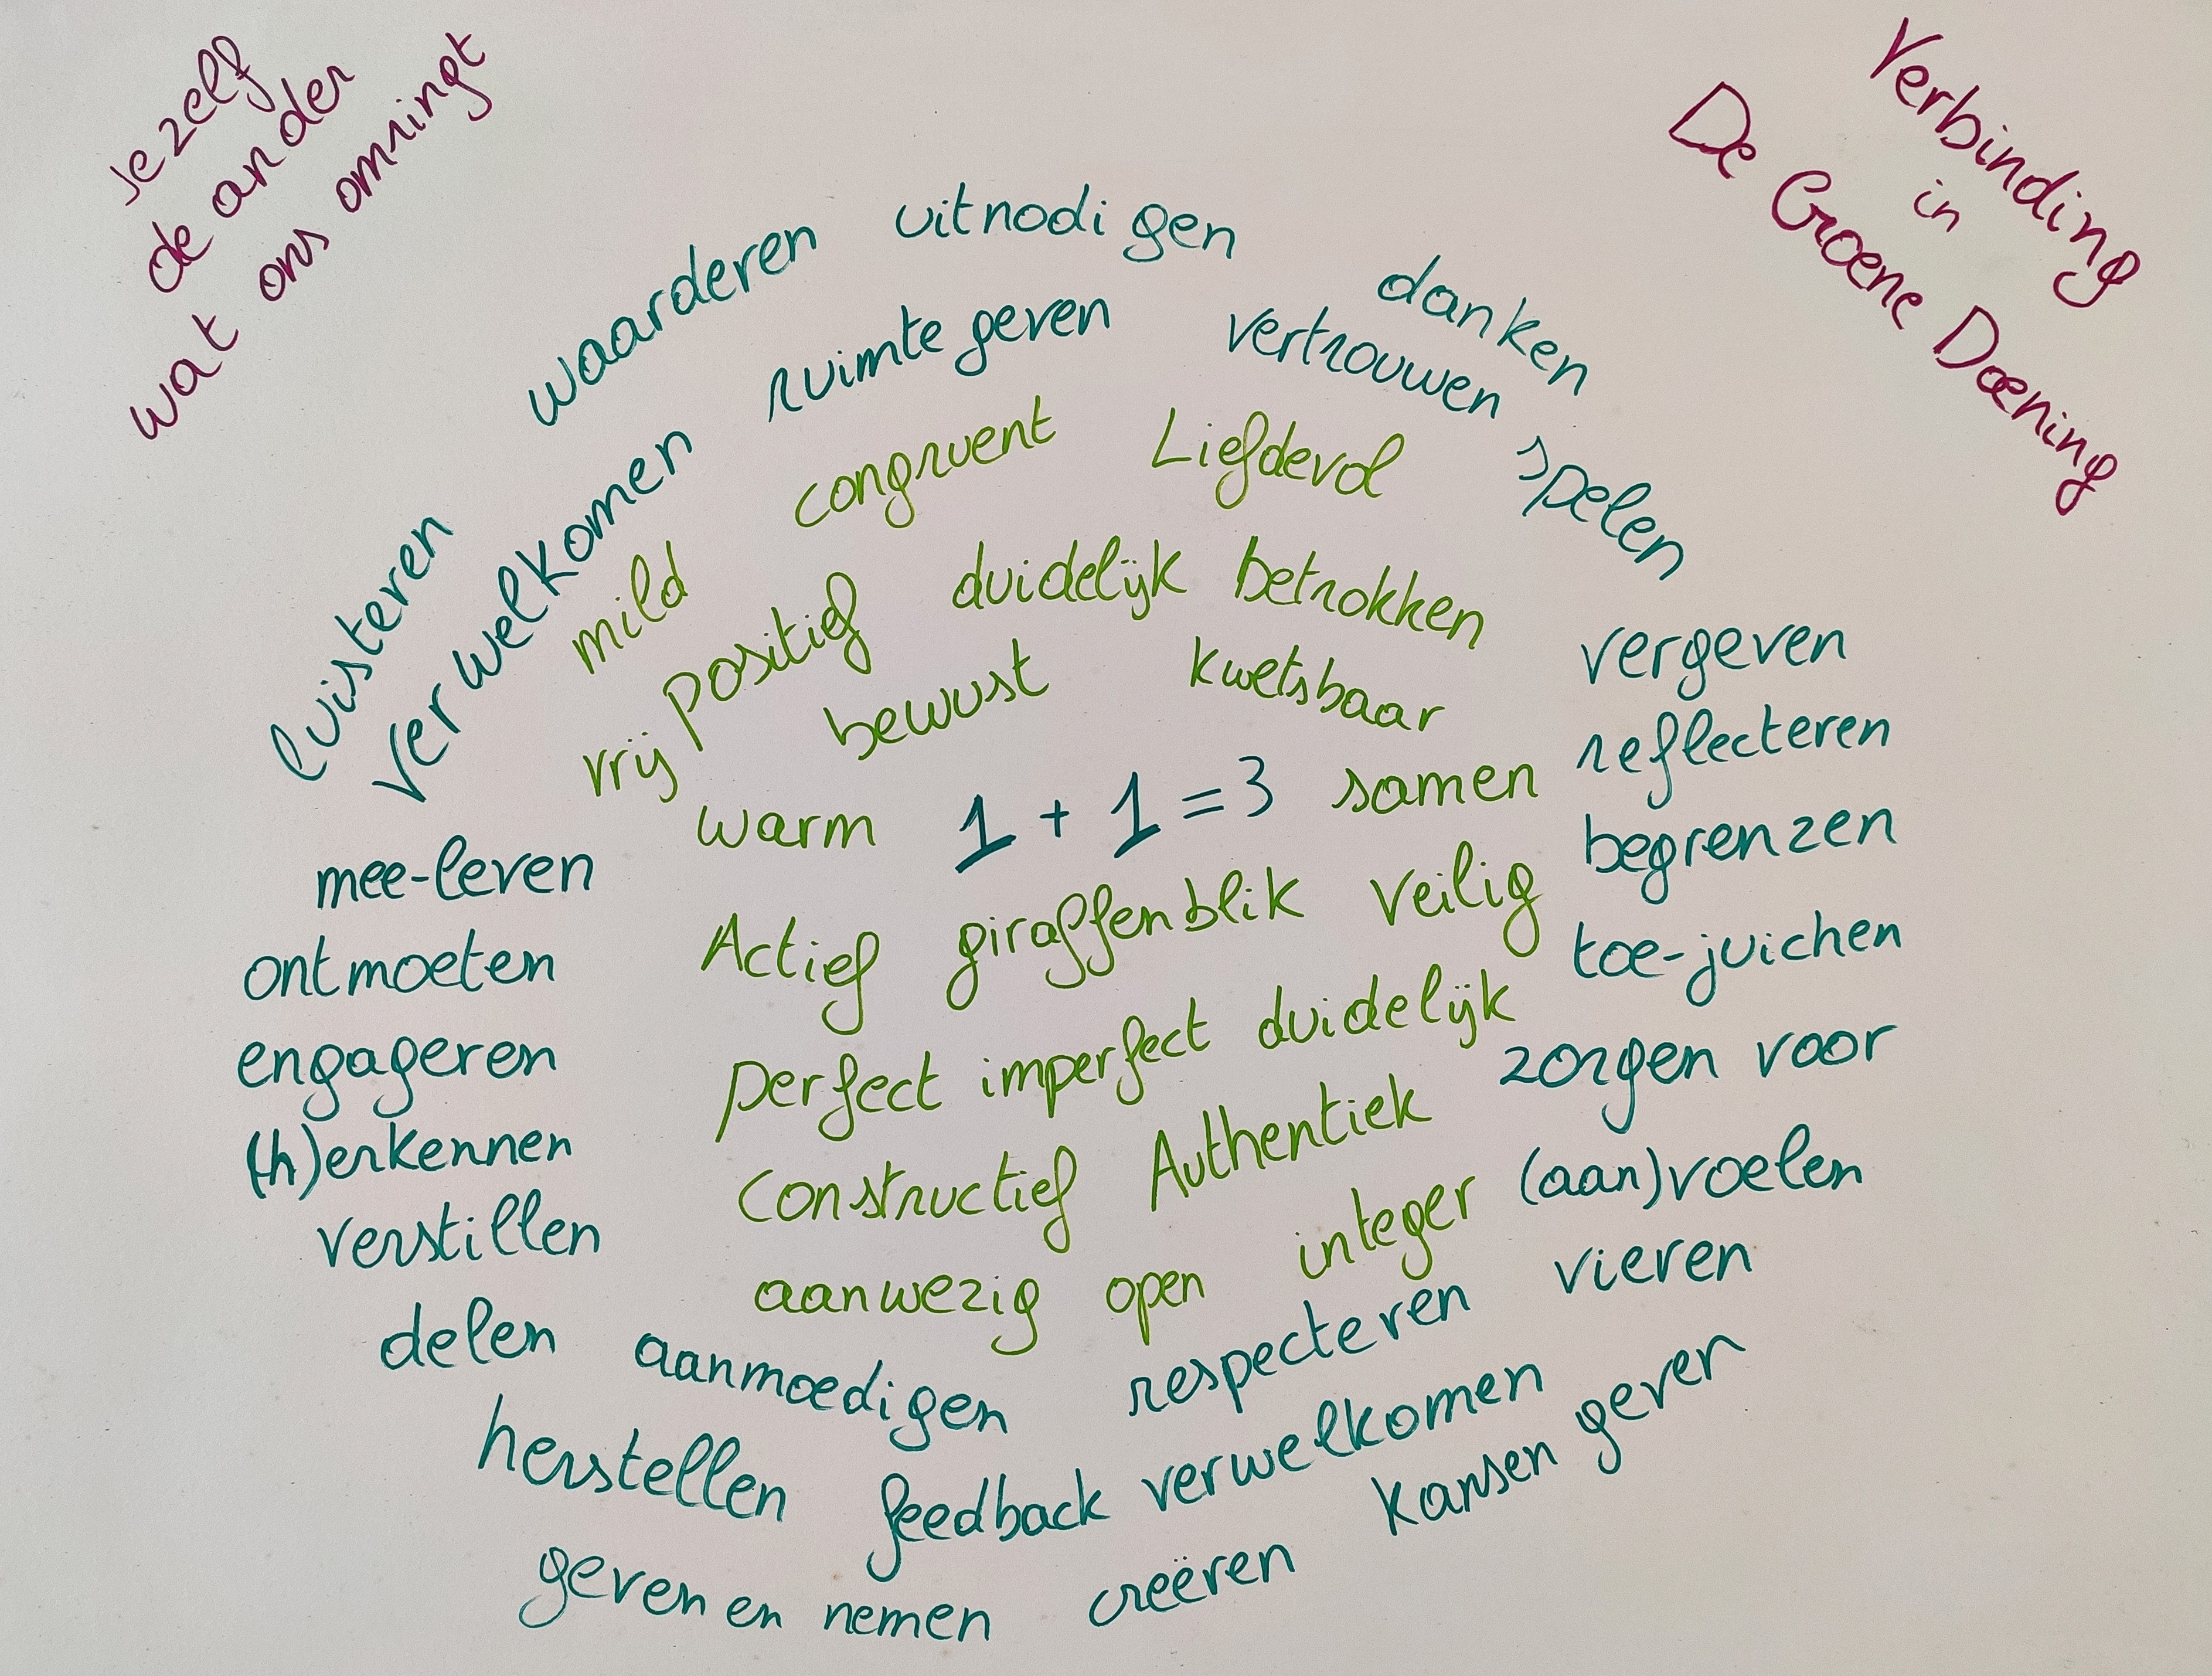 jezelf
de ander
wat ons omringt
Verbinding
in
De Groene Doening
waarderen uitnodigen danken
luisteren verwelkomen ruimte geven vertrouwen spelen
mild congruent Liefdevol
vrij positief duidelijk betrokken
bewust kwetsbaar
warm 1 + 1 = 3 samen
Actief giraffenblik veilig
perfect imperfect duidelijk
constructief Authentiek
aanwezig open integer
vergeven
reflecteren
begrenzen
toe-juichen
zorgen voor
(aan)voelen
vieren
mee-leven
ontmoeten
engageren
(h)erkennen
verstillen
delen aanmoedigen respecteren
herstellen feedback verwelkomen kansen geven
geven en nemen creëren